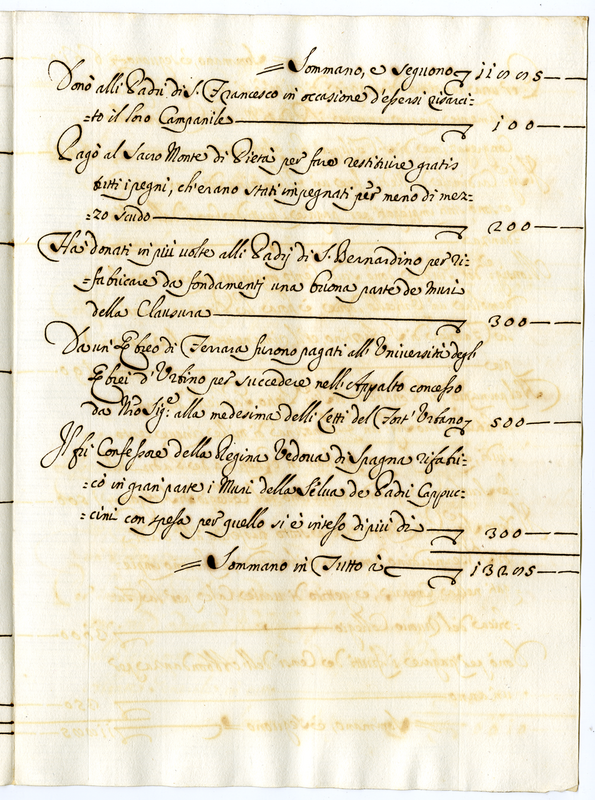 Sommano, e seguono 11885
Donò alli Padri di S. Francesco in occasione d'essersi risarci:
:to il loro Campanile 100
Pagò al Sacro Monte di Pietà per fare restituire gratis
tutti i pegni, ch'erano stati impegnati per meno di mez:
:zo scudo 200
Ha' donati in più volte alli Padri di S. Bernardino per ri:
:fabricare da fondamenti una buona parte de Muri
della Clausura 300
Da un' Ebreo di Ferrara furono pagati all' Università degli
Ebrei d'Urbino per succedere nell' Appalto concesso
da N'ro Sig.re alla medesima delli Letti del Fort' Urbano 500
Il fù Confessore della Regina Vedova di Spagna rifabri:
:cò in gran' parte i Muri della Selva de Padri Cappuc:
:cini con spesa per quello si è inteso di più di 300
Sommano in Tutto a 13285